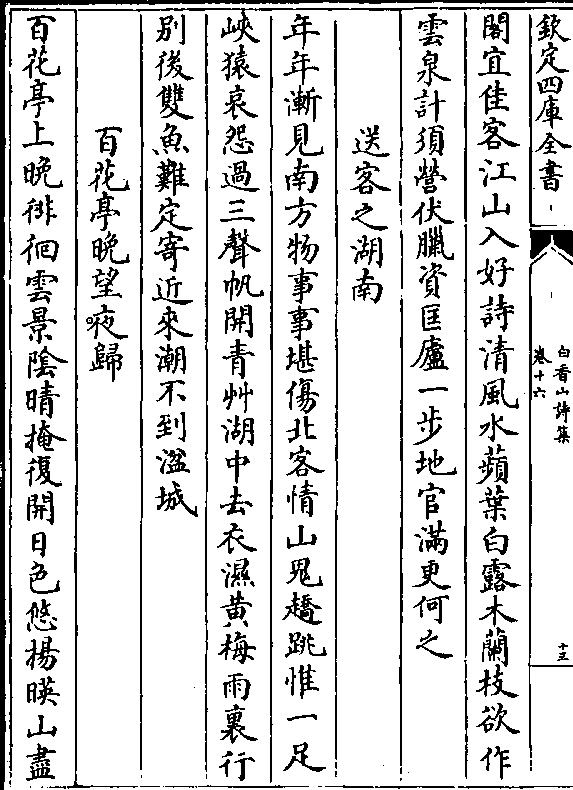 欽定四庫全書
白香山詩集
卷十六
閣宜佳客江山入好詩清風水蘋葉白露木蘭枝欲作
雲泉計須營伏臘資匡廬一步地官滿更何之
送客之湖南
年年漸見南方物事事堪傷北客情山鬼趫跳惟一足
峽猿哀怨過三聲帆開青艸湖中去衣濕黄梅雨裏行
别後雙魚難定寄近來潮不到湓城
百花亭晚望夜歸
百花亭上晚徘徊雲景陰晴掩復開日色悠揚暎山盡